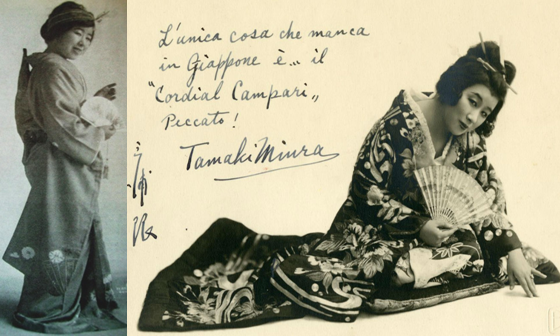 L'unica cosa che manca
in Giappone è... il
"Cordial Campari„
Peccato!
Tamaki Miura